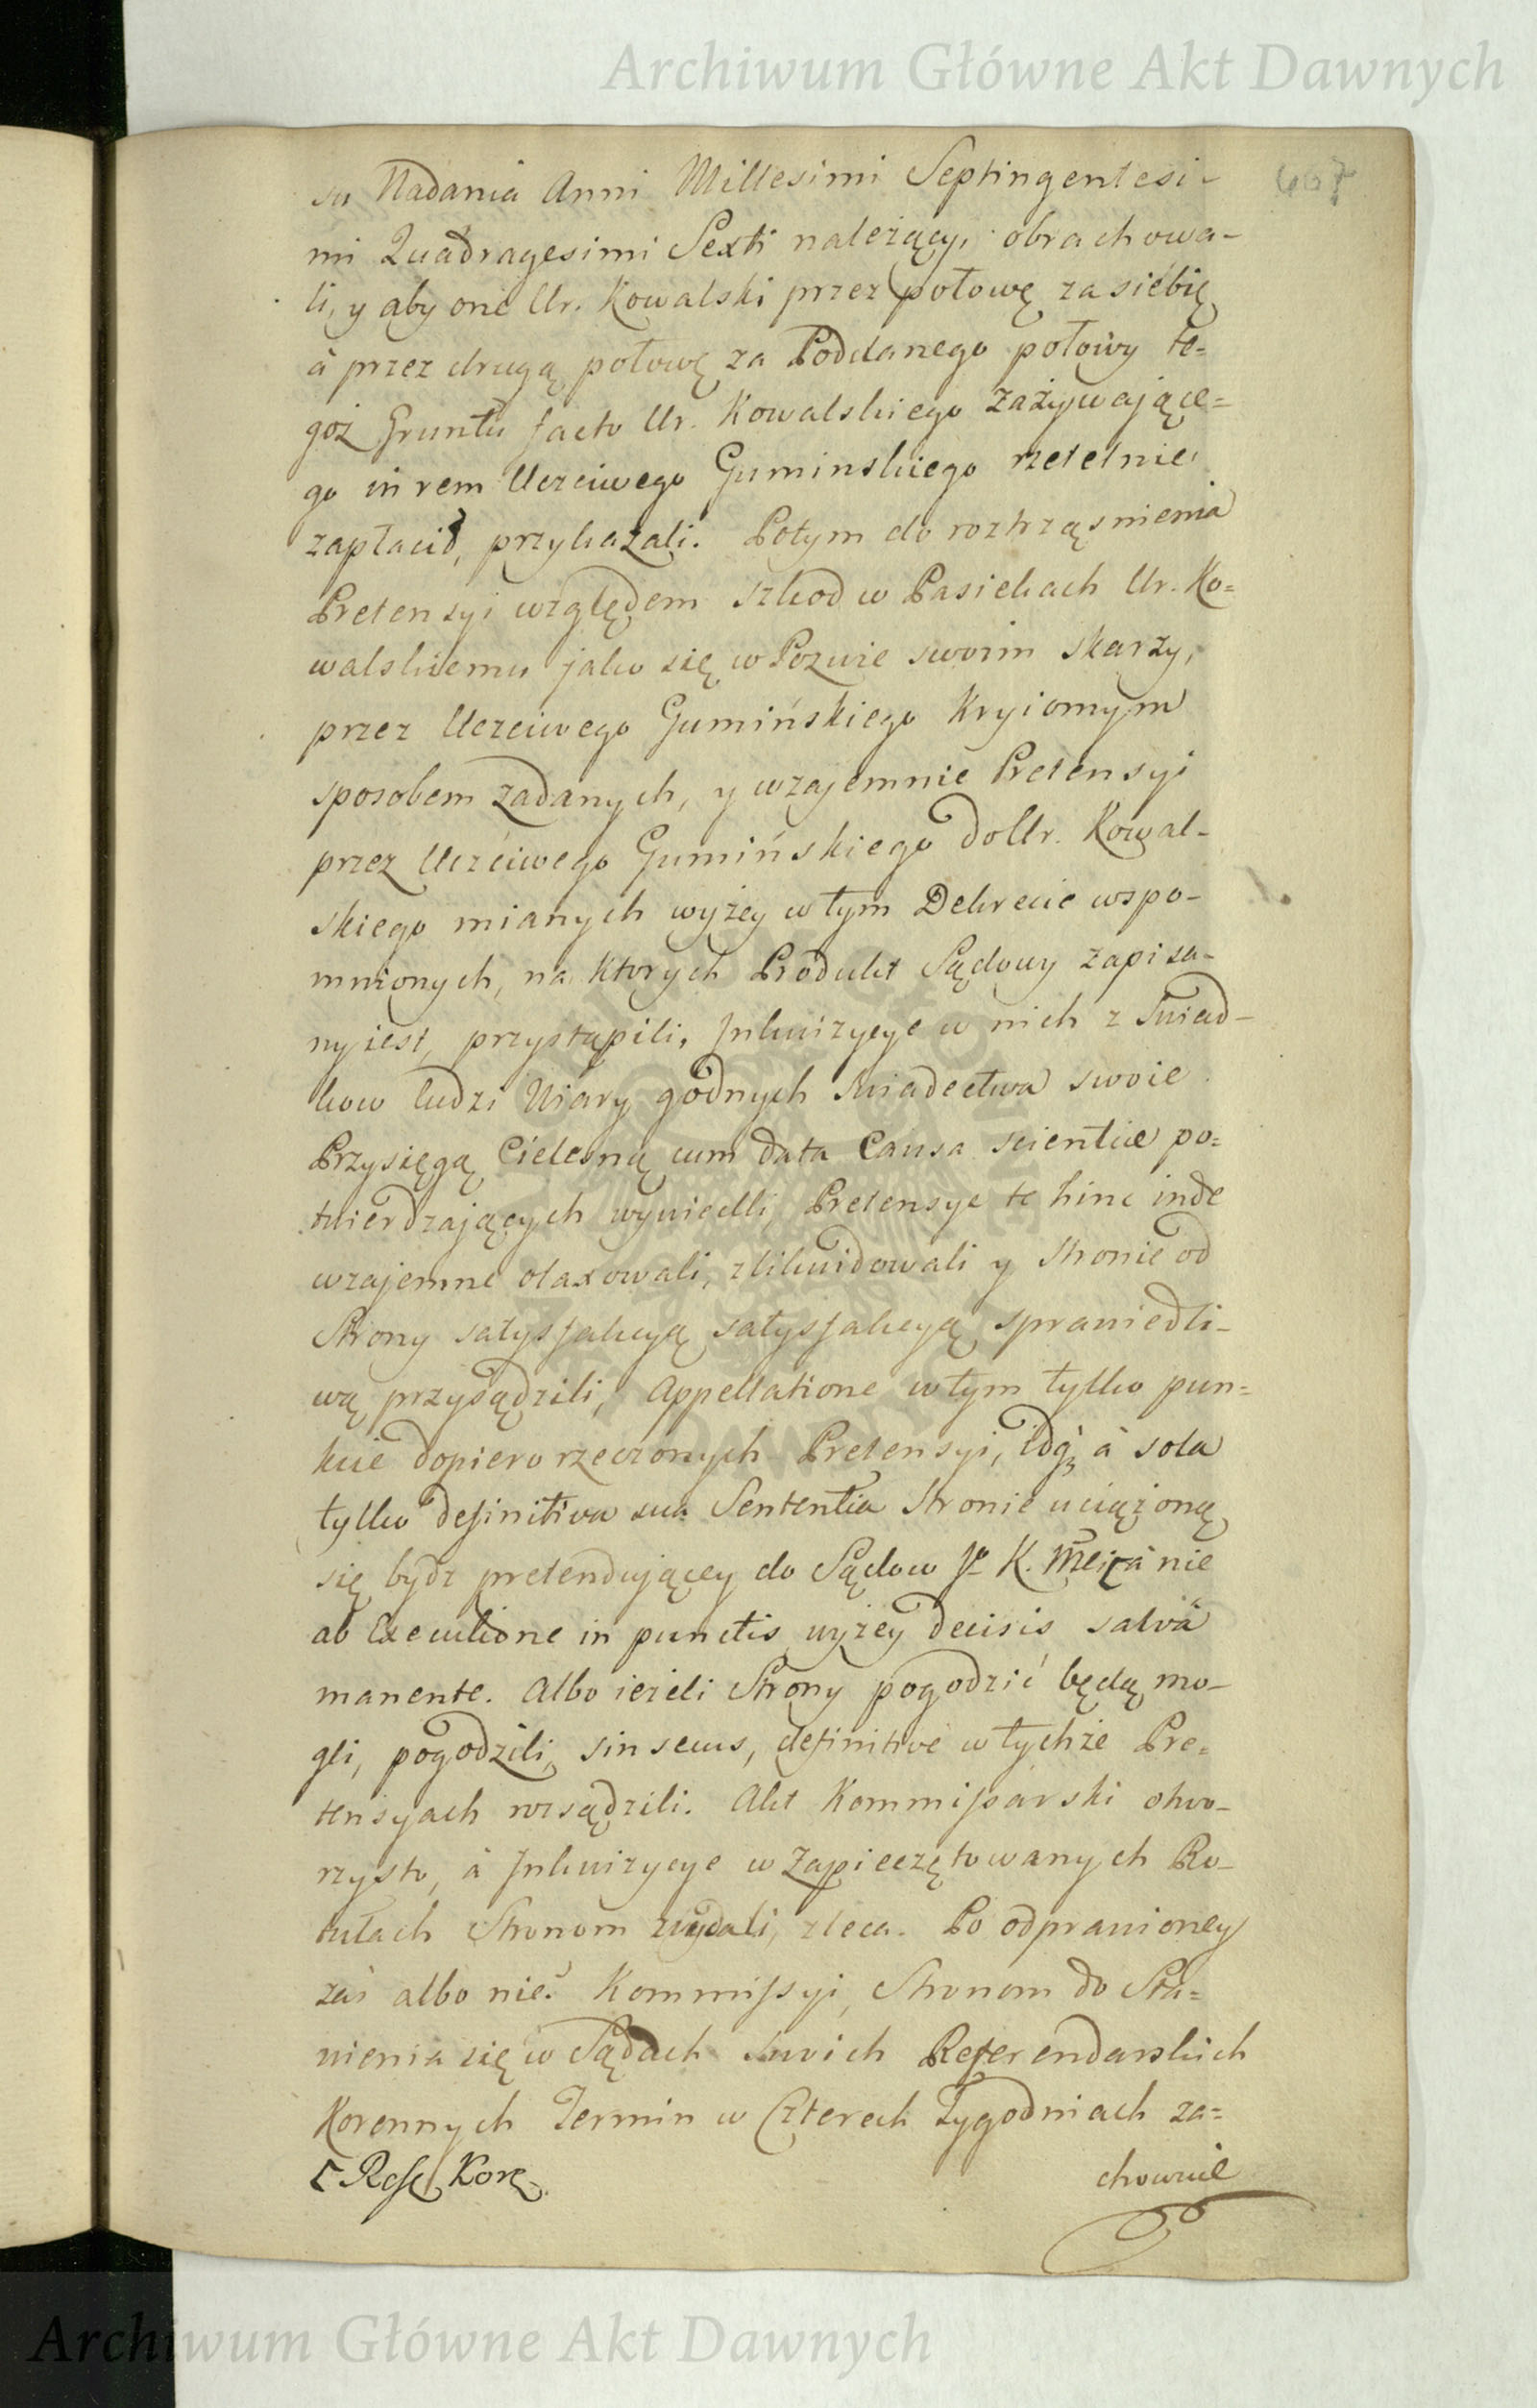 Archiwum Główne Akt Dawnych
su Nadania Anni Millesimi Septingentesi-
mi Quadragesimi Sexti należący, obrachowa-
li, y aby one Ur. Kowalski przez połowę za siebię
à przez drugą połowę za Poddanego połowy te=
goż Gruntu facto Ur. Kowalskiego zażywające=
go in rem Uczciwego Guminskiego rzetelnie
zapłacił, przykazali. Potym do roztrząsnienia
Pretensyi względem szkod w Pasiekach Ur. Ko=
walskiemu jako się w Pozwie swoim skarzy,
przez Uczciwego Gumińskiego Kryiomym
sposobem zadanych, y wzajemnie Pretensyi
przez Uczciwego Gumińskiego do Ur. Kowal-
skiego mianych wyżey w tym Dekrecie wspo-
mnionych, na ktorych Produkt Sądowy zapisa-
ny iest, przystąpili, Inkwizycye w nich z Swiad-
kow ludzi Wiary godnych swiadectwa swoie
Przysięgą Cielesną cum data Causa scientiæ po=
twierdzających wywiedli, Pretensye te hinc inde
wzajemne otaxowali, zlikwidowali y stronie od
Strony satysfakcyą satysfakcyą sprawiedli-
wą przysądzili, Appellatione w tym tylko pun=
kcie dopiero rzeczonych Pretensyi, idq3 à sola
tylko definitiva sua Sententia stronie uciążoną
się bydz pretendującey do Sądow J K. Mci à nie
ab Executione in punctis wyżey decisis salvâ
manente. Albo ieżeli Strony pogodzić będą mo-
gli, pogodzili, sin secus, definitive w tychże Pre=
tensyach rozsądzili. Akt Kommissarski otwo-
rzysto, à Inkwizycye w Zapieczętowanych Ro-
tułach Stronom wydali, zleca. Po odprawioney
zaś albo nie Kommissyi, Stronom do Sta=
wienia się w Sądach swoich Referendarskich
Koronnych Termin w Czterech Tygodniach za=
chownie
Archiwum Główne Akt Dawnych